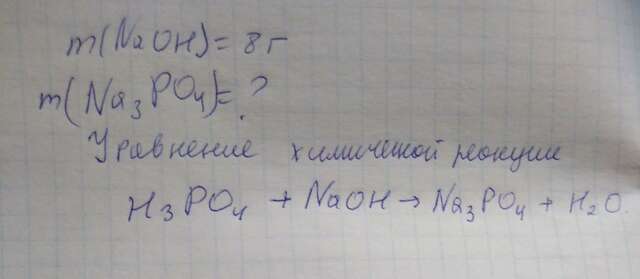 m(NaOH)= 8 г
m(Na₃PO₄)= ?
Уравнение химической реакции
H₃PO₄ + NaOH → Na₃PO₄ + H₂O.